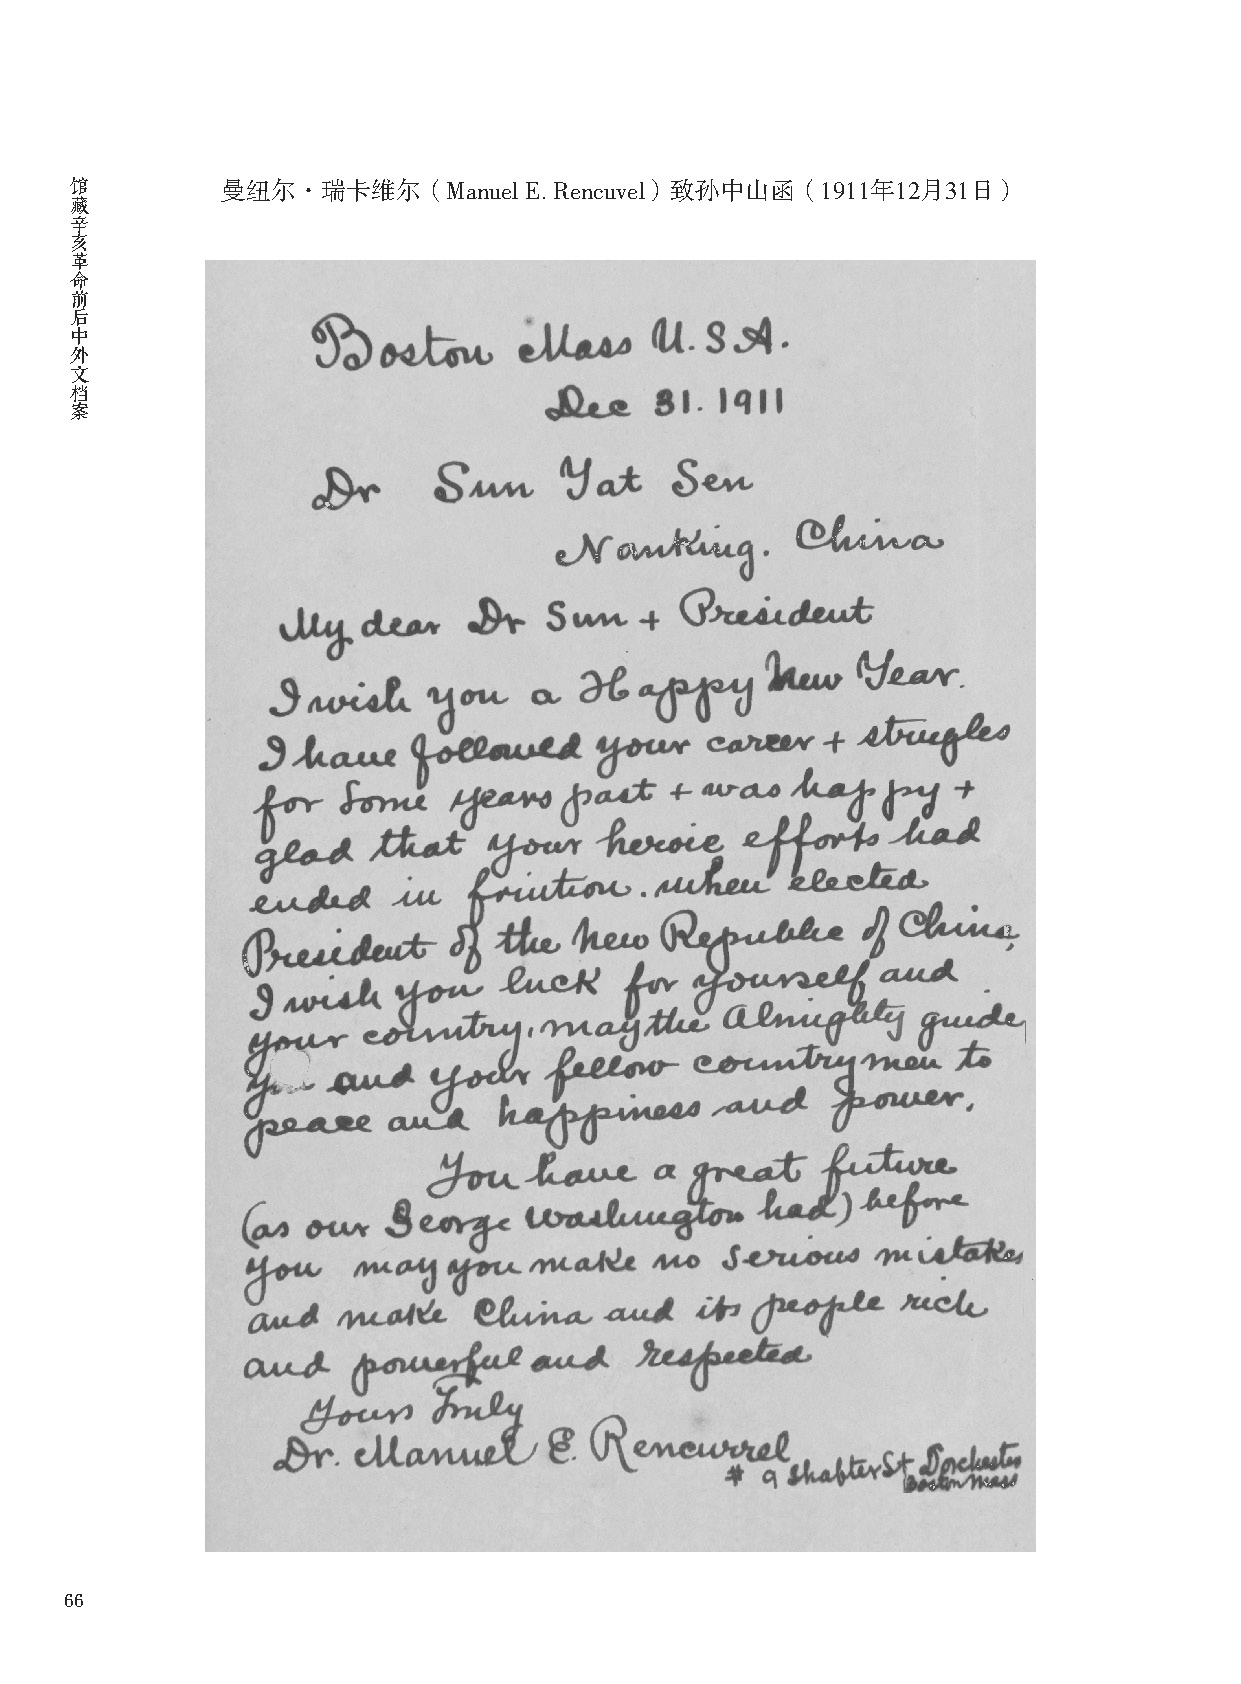 馆藏辛亥革命前后中外文档案
曼纽尔·瑞卡维尔（Manuel E. Rencuvel）致孙中山函（1911年12月31日）
Boston Mass U.S.A.
Dec 31. 1911
Dr Sun Yat Sen
Nanking. China
My dear Dr Sun + President
I wish you a Happy New Year.
I have followed your career + strugles
for some years past + was happy +
glad that your heroic efforts had
ended in friution. when elected
President of the New Republic of China,
I wish you luck for yourself and
your country, may the Almighty guide
and your fellow countrymen to
peace and happiness and power.
You have a great future
(as our George Washington had) before
you may you make no serious mistakes
and make China and its people rich
and powerful and respected
Yours Truly
Dr. Manuel E. Rencurrel
# 9 Shafter St Dorchester
Boston Mass
66